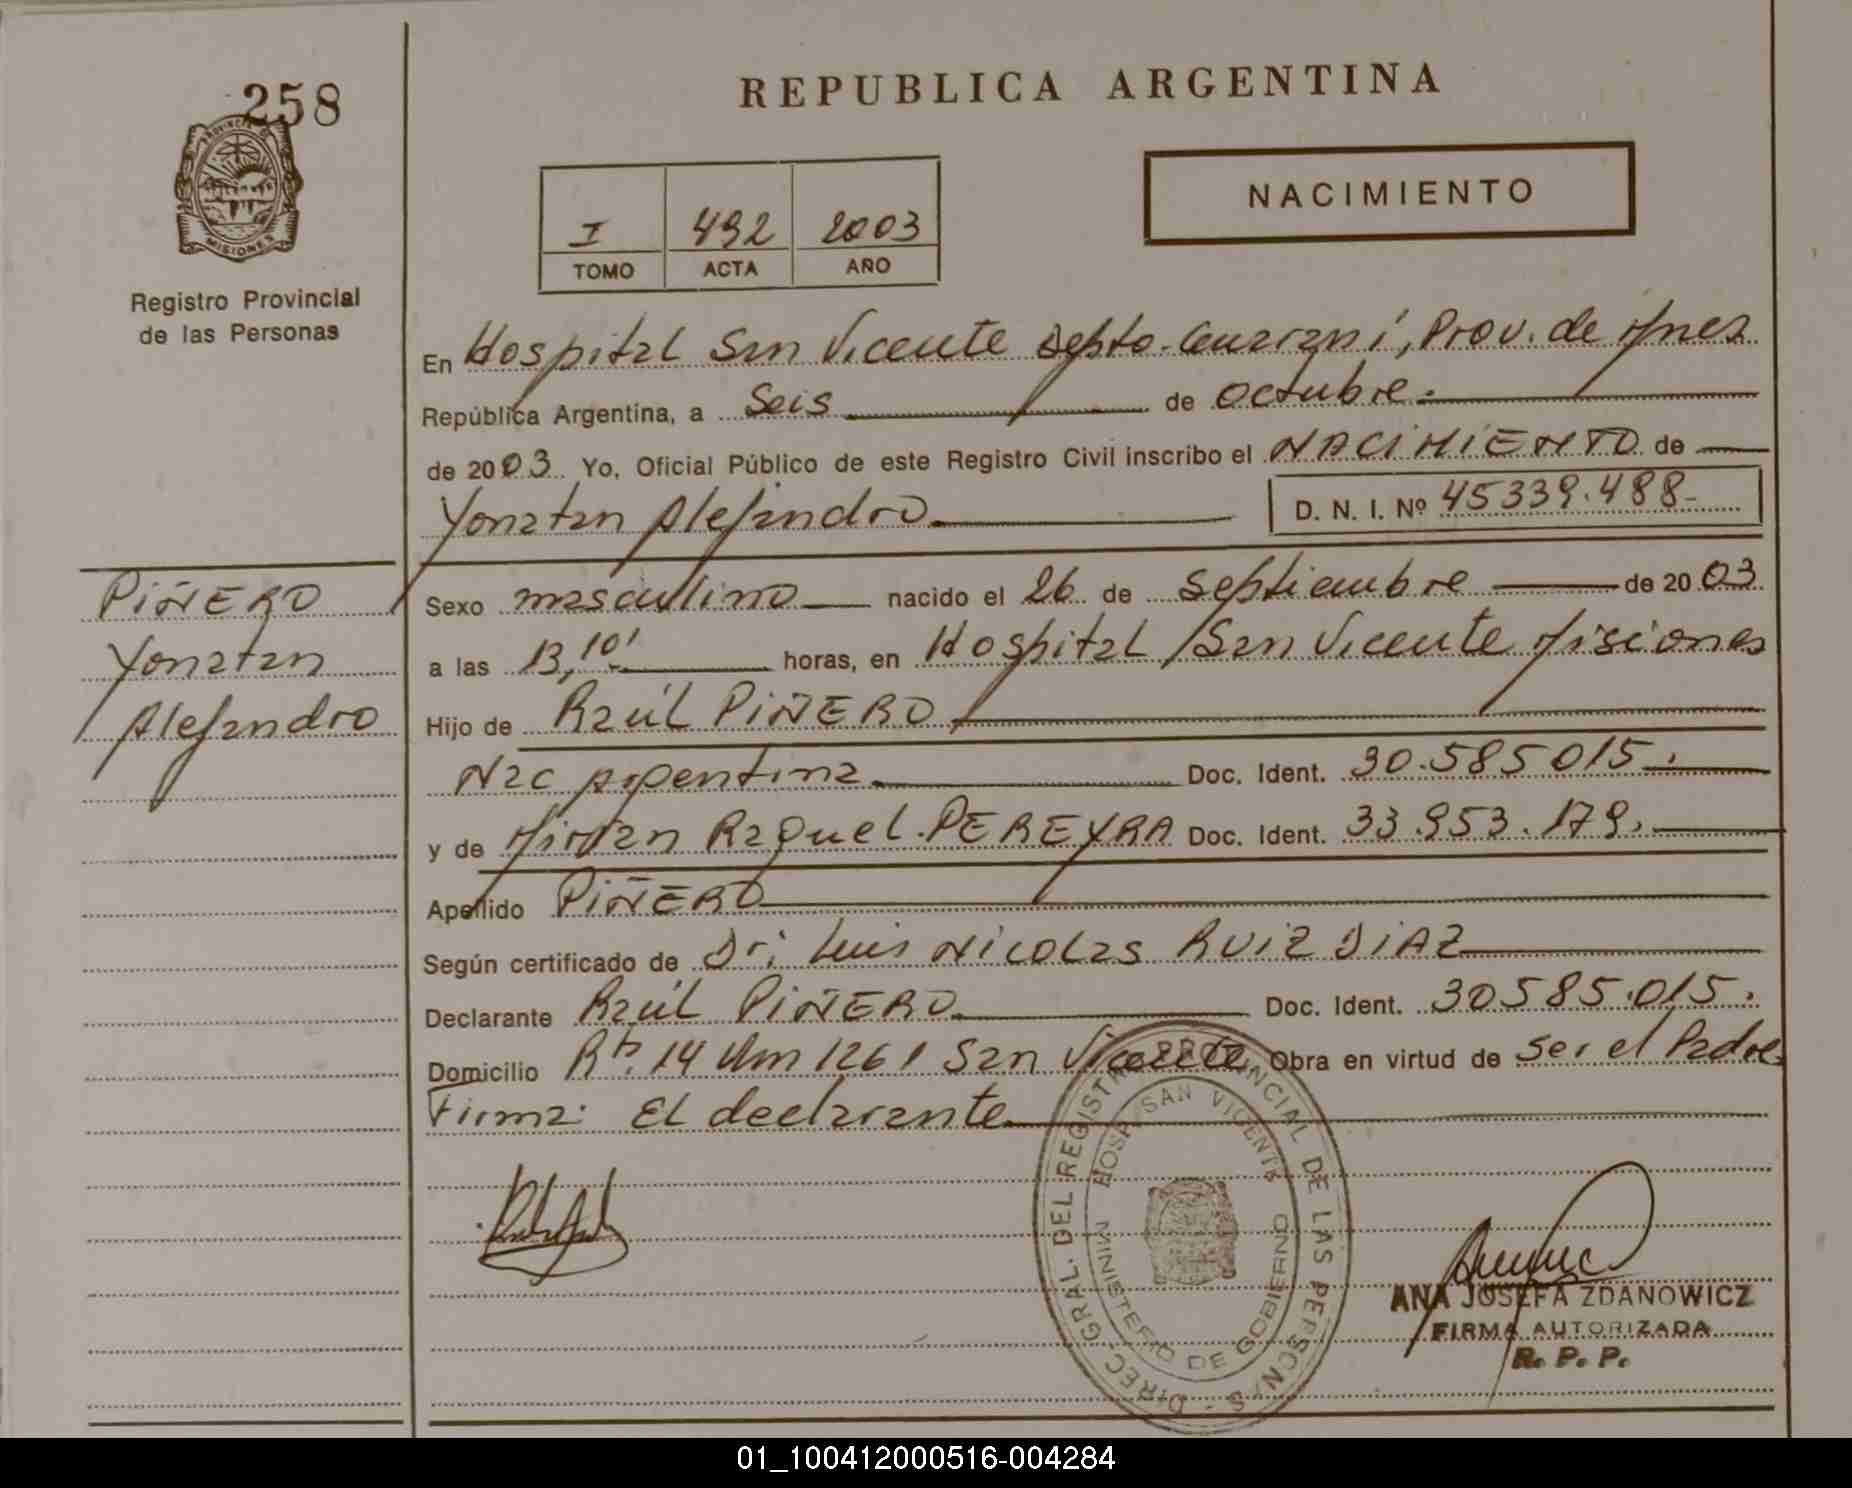 258
PROVINCIA DE
MISIONES
Registro Provincial
de las Personas
PIÑERO
Yonatan
Alejandro
REPUBLICA ARGENTINA
NACIMIENTO
I 492 2003
TOMO ACTA AÑO
En Hospital San Vicente Depto. Guaraní, Prov. de Mnes
República Argentina, a Seis de octubre.
de 2003 Yo, Oficial Público de este Registro Civil inscribo el NACIMIENTO de
Yonatan Alejandro D. N. I. Nº 45339.488-
Sexo masculino nacido el 26 de septiembre de 2003
a las 13,10' horas, en Hospital San Vicente Misiones
Hijo de Raúl PIÑERO
Nac argentina Doc. Ident. 30.585015.
y de Mirian Raquel PEREYRA Doc. Ident. 33.953.179.
Apellido PIÑERO
Según certificado de Dr; Luis Nicolas RUIZ DIAZ
Declarante Raúl PIÑERO Doc. Ident. 30585.015.
Domicilio Rta. 14 Km 1261 San Vicente Obra en virtud de ser el Padre
Firma: El declarante
DIREC. GRAL. DEL REGISTRO PROVINCIAL DE LAS PERSONAS -
HOSP. SAN VICENTE
MINISTERIO DE GOBIERNO
ANA JOSEFA ZDANOWICZ
FIRMA AUTORIZADA
R. P. P.
01_100412000516-004284